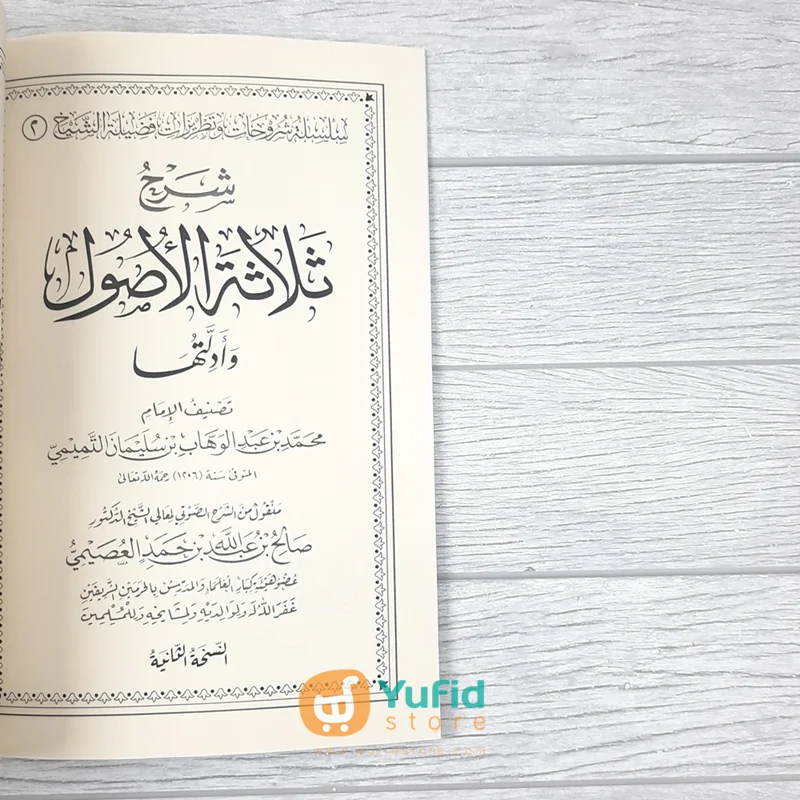 سلسلة شروحات وتطريزات فضيلة الشيخ ٢
شَرْحُ
ثَلَاثَةِ الأُصُول
وَأَدِلَّتُهَا
تَصْنِيفُ الإِمَامِ
مُحَمَّدِ بْنِ عَبْدِ الوَهَّابِ بْنِ سُلَيْمَانَ التَّمِيمِيِّ
المتوفى سنة (١٢٠٦) رحمه الله تعالى
منقول من الشرح الصوتي لمعالي الشيخ الدكتور
صَالِحُ بْنُ عَبْدِ اللَّهِ بْنِ حَمَدٍ الْعُصَيْمِيُّ
عضو هيئة كبار العلماء والمدرس بالحرمين الشريفين
غفر الله له ولوالديه ولمشايخه وللمسلمين
النُّسْخَةُ الثَّانِيَةُ
Yufid
store